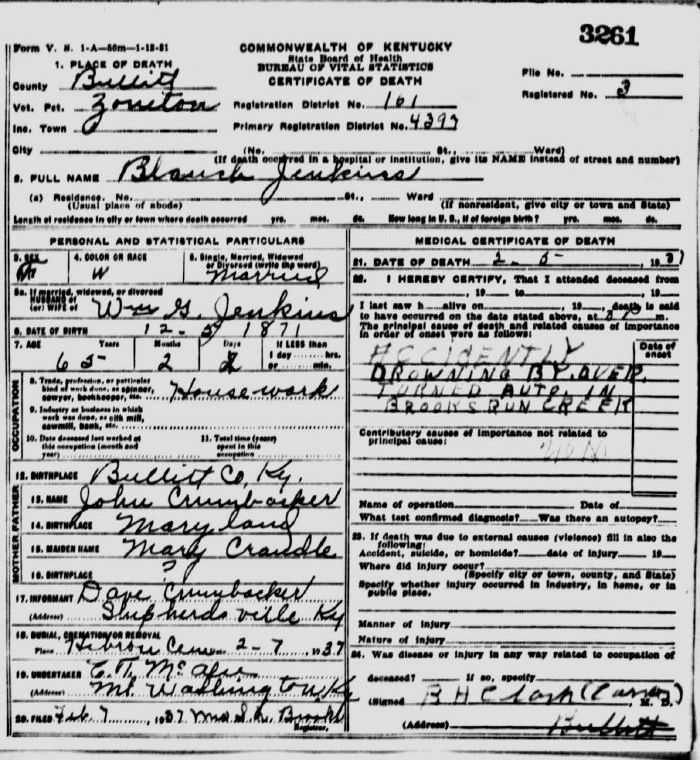 3261
Form V. S. 1-A—60m—1-12-31
COMMONWEALTH OF KENTUCKY
State Board of Health
BUREAU OF VITAL STATISTICS
CERTIFICATE OF DEATH
1. PLACE OF DEATH
County Bullitt
File No.
Registered No. 3
Vot. Pct. Zoneton
Registration District No. 161
Inc. Town
Primary Registration District No. 4397
City (No. St., Ward)
(If death occurred in a hospital or institution, give its NAME instead of street and number)
2. FULL NAME Blanch Jenkins
(a) Residence. No. St., Ward
(Usual place of abode) (If nonresident, give city or town and State)
Length of residence in city or town where death occurred yrs. mos. ds. How long in U. S., if of foreign birth? yrs. mos. ds.
PERSONAL AND STATISTICAL PARTICULARS
3. SEX
4. COLOR OR RACE W
5. Single, Married, Widowed or Divorced (write the word) Married
5a. If married, widowed, or divorced
HUSBAND of
(or) WIFE of Wm G. Jenkins
6. DATE OF BIRTH 12-3 1871
7. AGE Years Months Days If LESS than
1 day hrs.
or min.
65 2 2
OCCUPATION
8. Trade, profession, or particular kind of work done, as spinner, sawyer, bookkeeper, etc. Housework
9. Industry or business in which work was done, as silk mill, sawmill, bank, etc.
10. Date deceased last worked at this occupation (month and year)
11. Total time (years) spent in this occupation
12. BIRTHPLACE Bullitt Co. Ky.
FATHER
13. NAME John Crumbacker
14. BIRTHPLACE Maryland
MOTHER
15. MAIDEN NAME Mary Crandle
16. BIRTHPLACE ?
17. INFORMANT Dave Crumbacker
(Address) Shepherdsville Ky
18. BURIAL, CREMATION OR REMOVAL
Place Hebron Cem 2-7, 1937
19. UNDERTAKER
(Address) Mt Washington Ky
20. FILED Feb 7, 1937 Mrs S. R. Brooks
Registrar.
MEDICAL CERTIFICATE OF DEATH
21. DATE OF DEATH 2 5, 1937
22. I HEREBY CERTIFY, That I attended deceased from
, 19 to , 19
I last saw h alive on , 19 death is said
to have occurred on the date stated above, at m.
The principal cause of death and related causes of importance in order of onset were as follows:
Date of onset
ACCIDENTLY
DROWNING BY OVER
TURNED AUTO. IN
BROOKS RUN CREEK
Contributory causes of importance not related to principal cause:
Name of operation Date of
What test confirmed diagnosis? Was there an autopsy?
23. If death was due to external causes (violence) fill in also the following:
Accident, suicide, or homicide? date of injury 19
Where did injury occur?
(Specify city or town, county, and State)
Specify whether injury occurred in industry, in home, or in public place.
Manner of injury
Nature of injury
24. Was disease or injury in any way related to occupation of
deceased? If so, specify
(Signed B H Clark (Coroner), M. D.
(Address) Bullitt